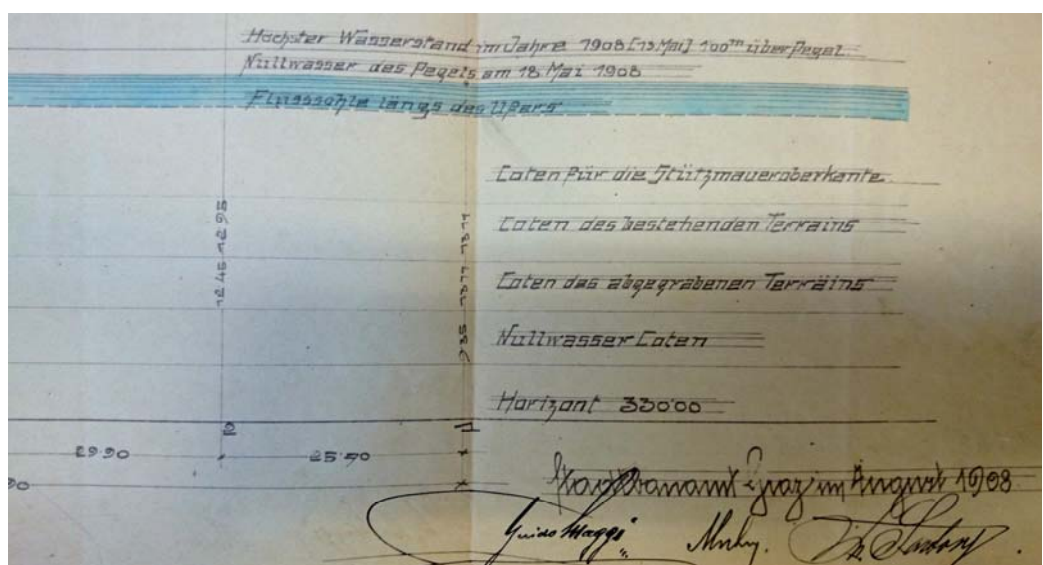 Höchster Wasserstand im Jahre 1908 [13. Mai] 100 m über Pegel.
Nullwasser des Pegels am 18 Mai 1908
Flusssohle längs des Ufers
Coten für die Stützmaueroberkante.
Coten des bestehenden Terrains
Coten des abgegrabenen Terräins
Nullwasser Coten
Horizont 330·00
12·45 12·95
9·35 13·77 13·77
29·90
25·90
Stadtbauamt Graz im August 1908.
Guido Maggi